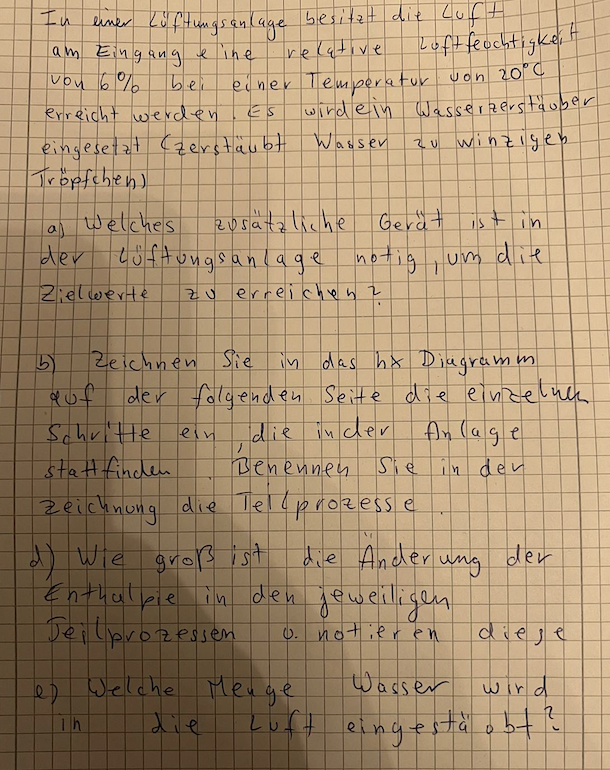 In einer Lüftungsanlage besitzt die Luft
am Eingang eine relative Luftfeuchtigkeit
von 6% bei einer Temperatur von 20°C
erreicht werden. Es wird ein Wasserzerstäuber
eingesetzt (zerstäubt Wasser zu winzigen
Tröpfchen)
a) Welches zusätzliche Gerät ist in
der Lüftungsanlage nötig, um die
Zielwerte zu erreichen?
b) Zeichnen Sie in das hx Diagramm
auf der folgenden Seite die einzelnen
Schritte ein, die in der Anlage
stattfinden. Benennen Sie in der
Zeichnung die Teilprozesse.
d) Wie groß ist die Änderung der
Enthalpie in den jeweiligen
Teilprozessen u. notieren diese
e) Welche Menge Wasser wird
in die Luft eingestäubt?